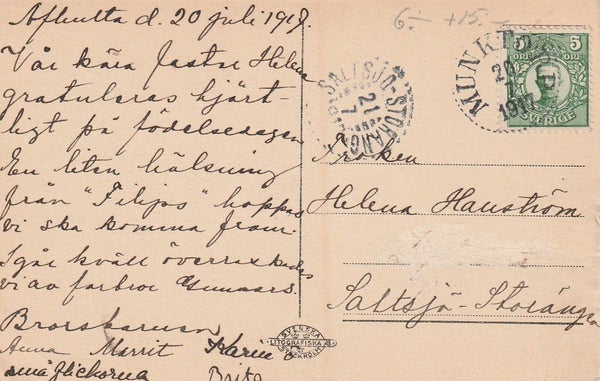 Aflutta d. 20 juli 1917.
Vår kära faster Helena
gratuleras hjärt-
ligt på födelsedagen
En liten hälsning
från "Filips" hoppas
vi ska komma fram.
Igår kväll överraskades
vi av farbror Gunnars.
Brorsbarnen
Anna Marrit Karin
småflickorna Brita
6:- +15:-
MUNKTORP
20
7
1917
5 5
ÖRE ÖRE
SVERIGE
SALTSJÖ-STORÄNGEN
21
7
Fröken
Helena Hanström
Saltsjö-Storängen
SVENSKA
LITOGRAFISKA A.B.
STOCKHOLM